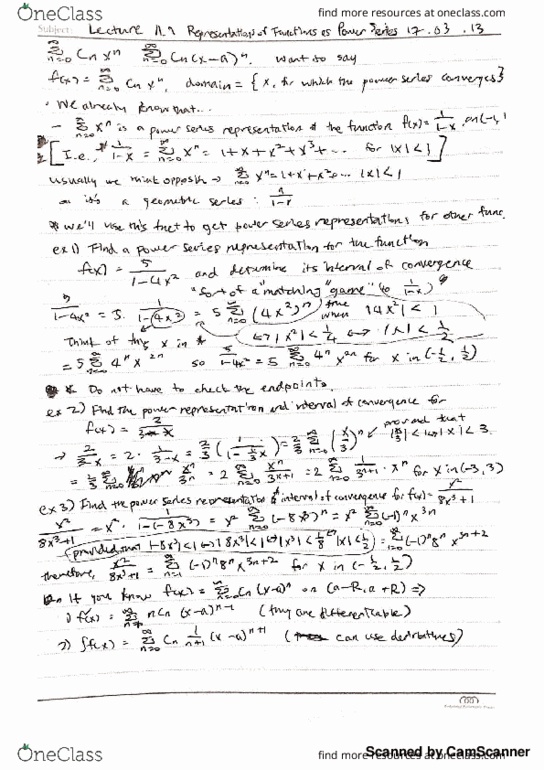 OneClass
find more resources at oneclass.com
Subject: Lecture 11.9 Representations of Functions as Power Series 17.03.13
∞Σn=0 Cn xⁿ ∞Σn=0 Cn(x-a)ⁿ. want to say
f(x) = ∞Σn=0 Cn xⁿ, domain = {x, for which the power series converges}
· We already know that...
- ∞Σn=0 xⁿ is a power series representation of the function f(x) = 1/(1-x) on (-1, 1
[I.e., 1/(1-x) = ∞Σn=0 xⁿ = 1+x+x²+x³+... for |x|<1]
Usually we think opposite → ∞Σn=0 xⁿ = 1+x+x²+... |x|<1
it's a geometric series : a/(1-r)
* we'll use this fact to get power series representations for other func.
ex 1) Find a power series representation for the function
f(x) = 5/(1-4x²) and determine its interval of convergence
"sort of a "matching" game" to 1/(1-x)
5/(1-4x²) = 5 · 1/(1-(4x²)) = 5 ∞Σn=0 (4x²)ⁿ true when |4x²| < 1
Think of this x in ↔ |x²| < 1/4 ↔ |x| < 1/2
= 5 ∞Σn=0 4ⁿ x²ⁿ so 5/(1-4x²) = 5 ∞Σn=0 4ⁿ x²ⁿ for x in (-1/2, 1/2)
* Do not have to check the endpoints.
ex 2) Find the power representation and interval of convergence for
f(x) = 2/(3-x)
provided that
→ 2/(3-x) = 2 · 1/(3-x) = 2/3 (1/(1-x/3)) = 2/3 ∞Σn=0 (x/3)ⁿ |x/3|<1 ↔ |x|<3.
= 2 ∞Σn=0 xⁿ/3ⁿ⁺¹ = 2 ∞Σn=0 1/3ⁿ⁺¹ · xⁿ for x in (-3, 3)
ex 3) Find the power series representation & interval of convergence for f(x) = x²/(8x³+1)
x²/(8x³+1) = x² · 1/(1-(-8x³)) = x² ∞Σn=0 (-8x³)ⁿ = x² ∞Σn=0 (-1)ⁿ x³ⁿ
(provided that |-8x³|<1 ↔ |8x³|<1 ↔ |x³|<1/8 ↔ |x|<1/2) = ∞Σn=0 (-1)ⁿ 8ⁿ x³ⁿ⁺²
therefore, x²/(8x³+1) = ∞Σn=1 (-1)ⁿ 8ⁿ x³ⁿ⁺² for x in (-1/2, 1/2)
If you know f(x) = ∞Σn=0 Cn (x-a)ⁿ on (a-R, a+R) ⇒
1) f'(x) = ∞Σ n Cn (x-a)ⁿ⁻¹ (they are differentiable)
2) ∫f(x) = ∞Σn=0 Cn 1/(n+1) (x-a)ⁿ⁺¹ (can use derivatives)
OneClass
find more resources at oneclass.com
Scanned by CamScanner